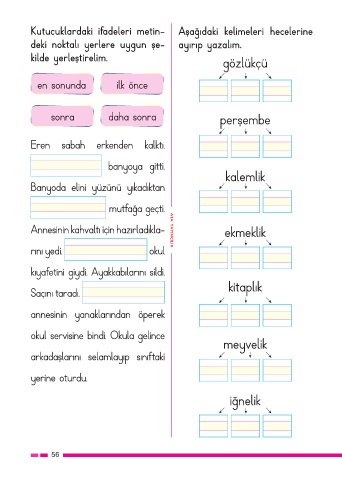 Kutucuklardaki ifadeleri metin-
deki noktalı yerlere uygun şe-
kilde yerleştirelim.
en sonunda
ilk önce
sonra
daha sonra
Eren sabah erkenden kalktı.
banyoya gitti.
Banyoda elini yüzünü yıkadıktan
mutfağa geçti.
Annesinin kahvaltı için hazırladıkla-
rını yedi. okul
kıyafetini giydi. Ayakkabılarını sildi.
Saçını taradı.
annesinin yanaklarından öperek
okul servisine bindi. Okula gelince
arkadaşlarını selamlayıp sınıftaki
yerine oturdu.
Aşağıdaki kelimeleri hecelerine
ayırıp yazalım.
gözlükçü
perşembe
kalemlik
ekmeklik
kitaplık
meyvelik
iğnelik
56